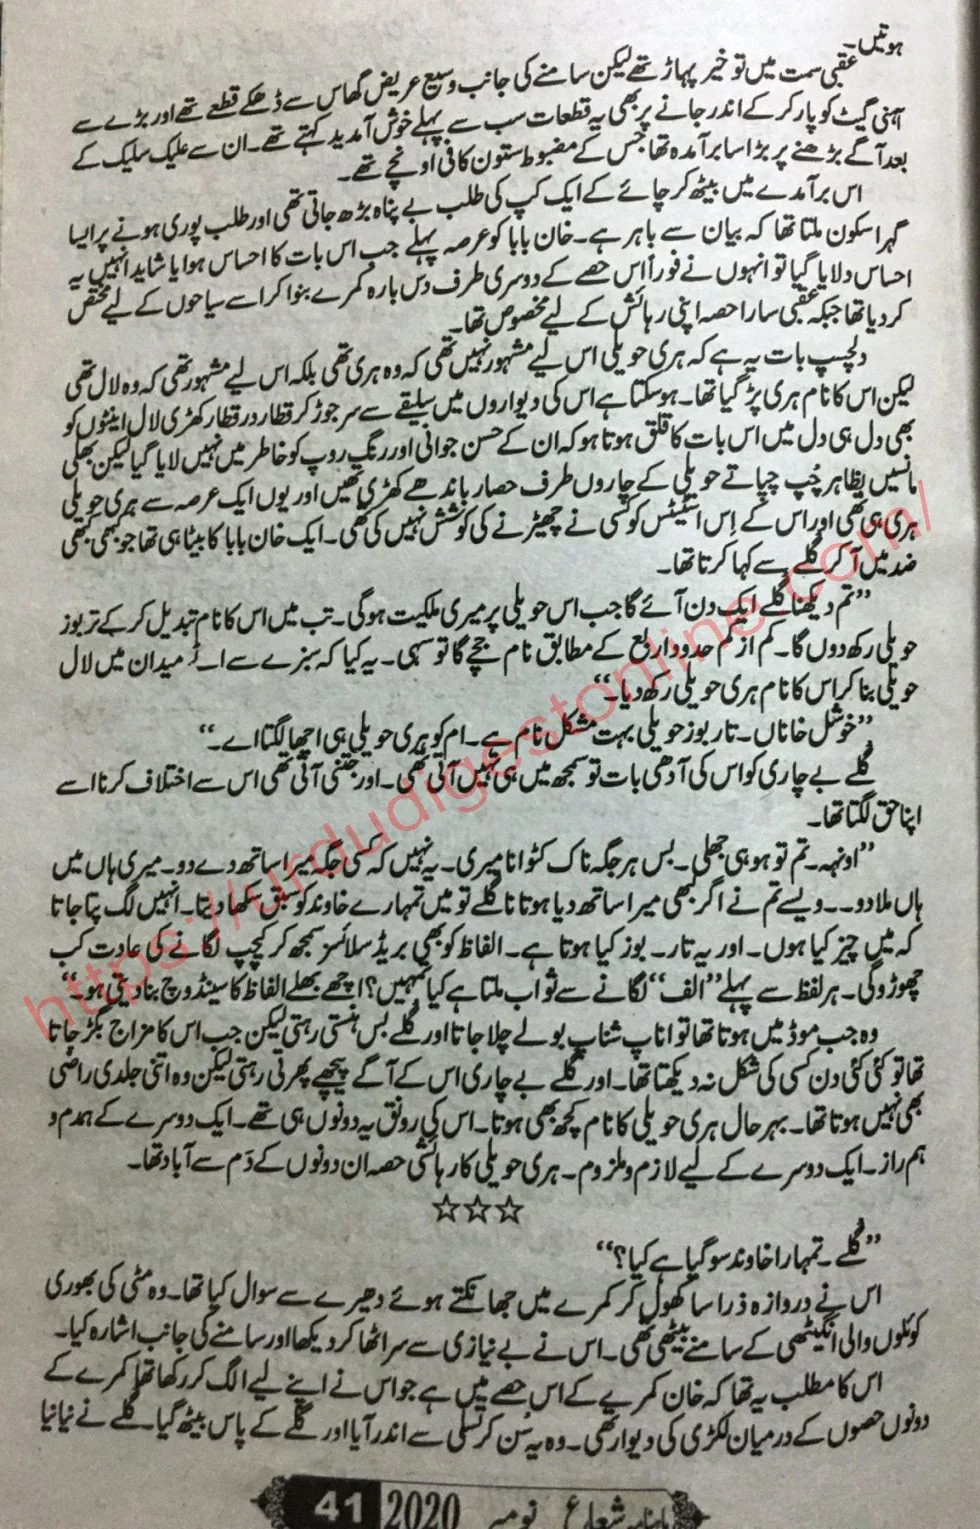 ہوتیں۔
عقبی سمت میں تو خیر پہاڑ تھے لیکن سامنے کی جانب وسیع عریض گھاس سے ڈھکے قطعے تھے اور بڑے سے
آہنی گیٹ کو پار کر کے اندر جانے پر بھی یہ قطعات سب سے پہلے خوش آمدید کہتے تھے۔ ان سے علیک سلیک کے
بعد آگے بڑھنے پر بڑا سا برآمدہ تھا جس کے مضبوط ستون کافی اونچے تھے۔
اس برآمدے میں بیٹھ کر چائے کے ایک کپ کی طلب بے پناہ بڑھ جاتی تھی اور طلب پوری ہونے پر ایسا
گہرا سکون ملتا تھا کہ بیان سے باہر ہے۔ خان بابا کو عرصہ پہلے جب اس بات کا احساس ہوا یا شاید انہیں یہ
احساس دلایا گیا تو انہوں نے فوراً اس حصے کے دوسری طرف دس بارہ کمرے بنوا کر اسے سیاحوں کے لیے مختص
کر دیا تھا جبکہ عقبی سارا حصہ اپنی رہائش کے لیے مخصوص تھا۔
دلچسپ بات یہ ہے کہ ہری حویلی اس لیے مشہور نہیں تھی کہ وہ ہری تھی بلکہ اس لیے مشہور تھی کہ وہ لال تھی
لیکن اس کا نام ہری پڑ گیا تھا۔ ہو سکتا ہے اس کی دیواروں میں سلیقے سے سر جوڑ کر قطار در قطار کھڑی لال اینٹوں کو
بھی دل ہی دل میں اس بات کا قلق ہوتا ہو کہ ان کے حسن جوانی اور رنگ روپ کو خاطر میں نہیں لایا گیا لیکن بھلی
مانسیں بظاہر چپ چپاتے حویلی کے چاروں طرف حصار باندھے کھڑی تھیں اور یوں ایک عرصہ سے ہری حویلی
ہری ہی تھی اور اس کے اس اسٹیٹس کو کسی نے چھیڑنے کی کوشش نہیں کی تھی۔ ایک خان بابا کا بیٹا ہی تھا جو کبھی کبھی
ضد میں آ کر گلے سے کہا کرتا تھا۔
”تم دیکھنا گلے ایک دن آئے گا جب اس حویلی پر میری ملکیت ہوگی۔ تب میں اس کا نام تبدیل کر کے تربوز
حویلی رکھ دوں گا۔ کم از کم حدود اربع کے مطابق نام جچے گا تو سہی۔ یہ کیا کہ سبزے سے اٹے میدان میں لال
حویلی بنا کر اس کا نام ہری حویلی رکھ دیا۔“
”خوشل خاناں۔ تار بوز حویلی بہت مشکل نام ہے۔ ام کو ہری حویلی ہی اچھا لگتا اے۔“
گلے بے چاری کو اس کی آدھی بات تو سمجھ میں ہی نہیں آئی تھی۔ اور جتنی آئی تھی اس سے اختلاف کرنا اسے
اپنا حق لگتا تھا۔
”اونہہ۔ تم تو ہو ہی جھلی۔ بس ہر جگہ ناک کٹوانا میری۔ یہ نہیں کہ کسی جگہ میرا ساتھ دے دو۔ میری ہاں میں
ہاں ملا دو۔۔ ویسے تم نے اگر کبھی میرا ساتھ دیا ہوتا نا گلے تو میں تمہارے خاوند کو سبق سکھا دیتا۔ انہیں لگ پتا جاتا
کہ میں چیز کیا ہوں۔ اور یہ تار۔ بوز کیا ہوتا ہے۔ الفاظ کو بھی بریڈ سلائسز سمجھ کر کیچپ لگانے کی عادت کب
چھوڑو گی۔ ہر لفظ سے پہلے ”الف“ لگانے سے ثواب ملتا ہے کیا تمہیں؟ اچھے بھلے الفاظ کا سینڈوچ بنا دیتی ہو۔“
وہ جب موڈ میں ہوتا تھا تو اناپ شناپ بولے چلا جاتا اور گلے بس ہنستی رہتی لیکن جب اس کا مزاج بگڑ جاتا
تھا تو کئی کئی دن کسی کی شکل نہ دیکھتا تھا۔ اور گلے بے چاری اس کے آگے پیچھے پھرتی رہتی لیکن وہ اتنی جلدی راضی
بھی نہیں ہوتا تھا۔ بہرحال ہری حویلی کا نام کچھ بھی ہوتا۔ اس کی رونق یہ دونوں ہی تھے۔ ایک دوسرے کے ہمدم و
ہم راز۔ ایک دوسرے کے لیے لازم و ملزوم۔ ہری حویلی کا رہائشی حصہ ان دونوں کے دم سے آباد تھا۔
☆☆☆
”گلے۔ تمہارا خاوند سو گیا ہے کیا؟“
اس نے دروازہ ذرا سا کھول کر کمرے میں جھانکتے ہوئے دھیرے سے سوال کیا تھا۔ وہ مٹی کی بھوری
کوئلوں والی انگیٹھی کے سامنے بیٹھی تھی۔ اس نے بے نیازی سے سر اٹھا کر دیکھا اور سامنے کی جانب اشارہ کیا۔
اس کا مطلب یہ تھا کہ خان کمرے کے اس حصے میں ہے جو اس نے اپنے لیے الگ کر رکھا تھا کمرے کے
دونوں حصوں کے درمیان لکڑی کی دیوار تھی۔ وہ یہ سن کر تسلی سے اندر آیا اور گلے کے پاس بیٹھ گیا۔ گلے نے نیا نیا
ماہنامہ شعاع نومبر 2020 41
https://urdudigestonline.com/